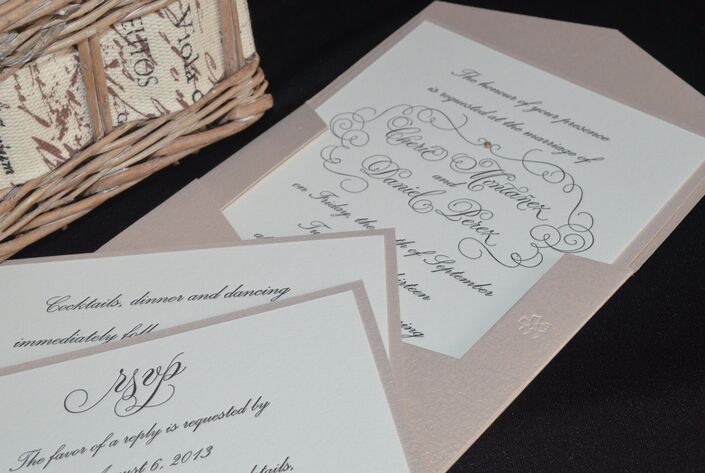 Viola
The honour of your presence
is requested at the marriage of
Chérie Montañez
and
Daniel Pérez
on Friday, the
th of September
Tw
irteen
Cocktails, dinner and dancing
immediately foll
rsvp
The favor of a reply is requested by
August 6, 2013
cocktails,